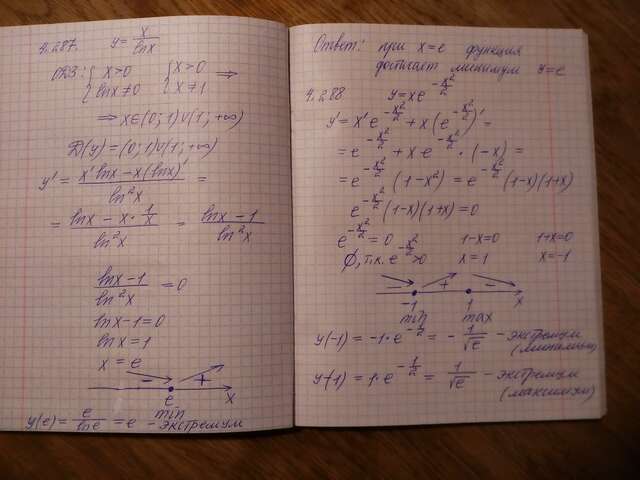 4.287. y = x/lnx
ОДЗ: { x>0 { x>0 ⇒
{ lnx≠0 { x≠1
⇒ x∈(0; 1)∪(1; +∞)
D(y) = (0; 1)∪(1; +∞)
y' = (x' lnx − x(lnx)')/ln²x =
= (lnx − x · 1/x)/ln²x = (lnx − 1)/ln²x
(lnx − 1)/ln²x = 0
lnx − 1 = 0
lnx = 1
x = e
− +
e x
min
y(e) = e/lne = e - экстремум
Ответ: при x = e функция
достигает минимум y = e
4.288 y = xe^(-x²/2)
y' = x' e^(-x²/2) + x (e^(-x²/2))' =
= e^(-x²/2) + x e^(-x²/2) · (−x) =
= e^(-x²/2) (1−x²) = e^(-x²/2) (1−x)(1+x)
e^(-x²/2) (1−x)(1+x) = 0
e^(-x²/2) = 0 1−x=0 1+x=0
∅, т.к. e^(-x²/2) >0 x = 1 x = −1
− + −
−1 1 x
min max
y(−1) = −1·e^(-1/2) = − 1/√e - экстремум
(минимум)
y(1) = 1·e^(-1/2) = 1/√e - экстремум
(максимум)